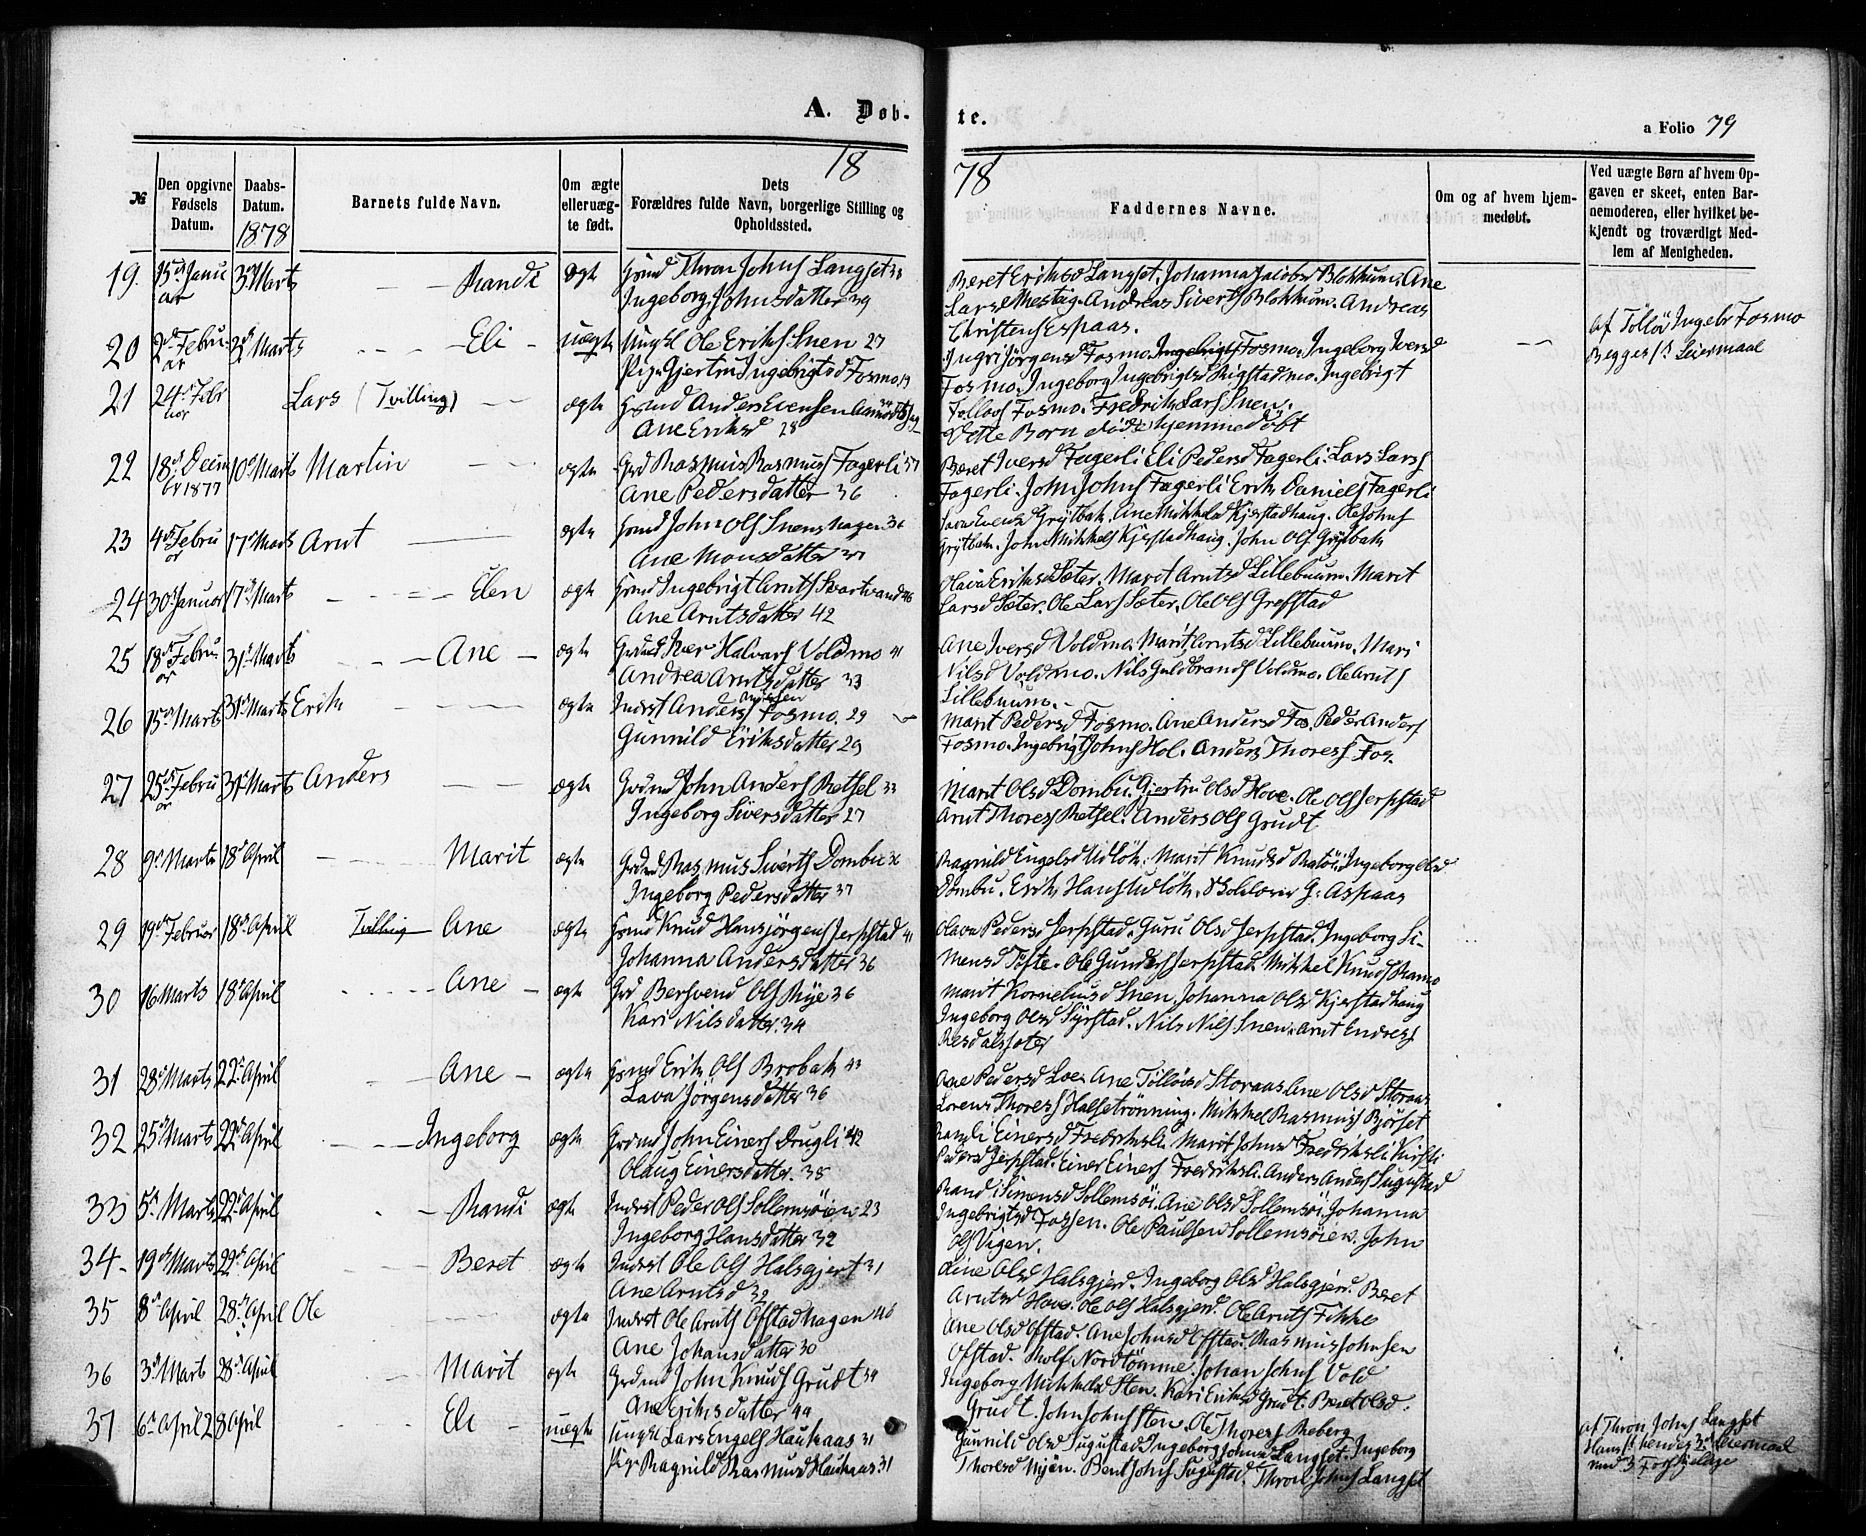 A. Døb-
te.
a Folio 79
18
78
№
Den opgivne Fødsels Datum.
Daabs-Datum. 1878
Barnets fulde Navn.
Om ægte eller uæg-te født.
Dets Forældres fulde Navn, borgerlige Stilling og Opholdssted.
Faddernes Navne.
Om og af hvem hjem-medøbt.
Ved uægte Børn af hvem Op-gaven er skeet, enten Bar-nemoderen, eller hvilket be-kjendt og troværdigt Med-lem af Menigheden.
19. 15d Janu 3d Marts Randi ægte Thron Johns Langset 33
ar Ingeborg Johnsdatter 39
Beret Eriksd Langset. Johanna Jacobsd Blokkum. Ane
Lars Andreas Siverts Blokkum. Andreas
Christens Espaas.
20 2d Febru 3d Marts Eli uægte Ungkl Ole Eriks Snen 27
ar Pige Gjertru Ingebrigtsd Fosmo 19
Ingri Jörgensd Fosmo. Ingebrigts Fosmo. Ingeborg Iversd
Fosmo. Ingeborg Ingebrigtsd Rigstadmo. Ingebrigt
Fosmo. Fredrik Lars Snen.
af Tollöv Ingebr Fosmo
Begges 1st Leiermaal
21 24d Febr Lars (Tvilling) ægte Anders Evensen
uar Ane Eriksd 28
Dette Barn döde hjemmedöbt
22 18d Decem 10d Marts Martin ægte Grd Rasmus Rasmus Fagerli 37
br 1877 Ane Pedersdatter 36
Beret Iversd Fagerli Eli Pedersd Fagerli. Lars Lars
Fagerli. John Johns Fagerli Erik Daniels Fagerli
23 4d Febru 17d Marts Arnt ægte John Ols Snenshagen 36
ar Ane Monsdatter
Evensd Grytbak. Ane Mikkelsd Kjerstadhaug. Ole Johns
Grytbak. John Mikkels Kjerstadhaug. John Ols Grytbak
24 30 Januar 17d Marts Elen ægte Ingebrigt Arnts Svartvand 46
Ane Arntsdatter 42
Olava Eriksd Sæter. Marit Arntsd Lillebuum. Marit
Larsd Sæter. Ole Lars Sæter. Ole Ols Grefstad
25 18d Febru 31d Marts Ane ægte Iver Halvars Voldmo 41
ar Andrea Arntsdatter 33
Ane Iversd Voldmo. Marit Arntsd Lillebuum. Mari
Nilsd Voldmo. Nils Guldbrands Voldmo. Ole Arnts
Lillebuum.
26 15d Marts 31d Marts Erik ægte Inderst Anders Fosmo. 29
Gunnild Eriksdatter 29
Marit Pedersd Fosmo. Ane Andersd Fos. Peder Anders
Fosmo. Ingebrigt Johns Hol. Anders Thores Fos.
27 25d Febru 31d Marts Anders ægte John Anders Retsel 33
ar Ingeborg Siversdatter 27
Marit Olsd Dombu. Gjertru Olsd Hove. Ole Ols Jerpstad
Arnt Thores Retsel. Anders Ols Grudt
28 9d Marts 18d April Marit ægte Rasmus Siverts Dombu 36
Ingeborg Pedersdatter 37
Ragnild Engelsd Udlök. Marit Knudsd Ratöi. Ingeborg Olsd
Dombu. Erik Hans Udlök. G. Aspaas
29 19d Februar 18d April Tvilling Ane ægte Knud Hansjörgens Jerpstad 41
Johanna Andersdatter 36
Olava Pedersd Jerpstad. Guru Olsd Jerpstad. Ingeborg Si-
mensd Tofte. Ole Gunders Jerpstad. Mikkel Knuds Ramo
30 16 Marts 18d April Ane ægte Grd Bersvend Ols Rye 36
Kari Nilsdatter 34
Marit Korneliusd Snen. Johanna Olsd Kjerstadhaug
Ingeborg Olsd Syrstad. Nils Nils Snen. Arnt Endres
Resdalssoter
31 28d Marts 22d April Ane ægte Erik Ols Brobak 43
Lava Jörgensdatter 36
Ane Pedersd Loe. Ane Tollövsd Storaas. Ane Olsd Storaas
Lorens Thores Halsetrönning. Mikkel Rasmus Björset
32 25d Marts 22d April Ingeborg ægte John Einers Drugli 42
Olaug Einersdatter. 38
Ragnli Einersd Fredriksli. Marit Johnsd Fredriksli Kirsti
Pedersd Jerpstad. Einer Einers Fredriksli. Anders Anders Sugustad
33 5d Marts 22d April Randi ægte Inderst Peder Ols Sollemsöien 23
Ingeborg Hansdatter 32
Randi Simensd Sollemsöi. Ane Olsd Sollemsöi. Johanna
Ingebrigtsd Fossen. Ole Paulsen Sollemsöien. John
Ols Vigen.
34- 19d Marts 22d April Beret ægte Inderst Ole Ols Halsgjert 31
Ane Arntsd 32
Line Olsd Halsgjerd. Ingeborg Olsd Halsgjerd. Beret
Arntsd Hove. Ole Ols Halsgjerd. Ole Arnts Fikke
35 8d April 28d April Ole ægte Inderst Ole Arnts Ofstadhagen 46
Ane Johansdatter 30
Ane Olsd Ofstad. Ane Johnsd Ofstad. Rasmus Johnsen
Ofstad. Rolf Nordtömme. Johan Johns Vold
36 3d Marts 28d April Marit ægte John Knuds Grudt 34
Ane Eriksdatter 44
Ingeborg Mikkelsd Sten. Kari Eriksd Grudt. Beret Olsd.
Grudt. John Johns Sten. Ole Thores Reberg
37 6d April 28 April Eli uægte Ungkl Lars Engels Haukaas 31
Pige Ragnild Rasmusd Haukaas 31
Gunnild Olsd Sugustad Ingeborg Johnsd Langset. Ingeborg
Thoresd Mjön. Bent Johns Sugustad. Thron Johns Langset
af Thron Johns Langset
Hans 1st hendes 3d Leiermaal
med 3